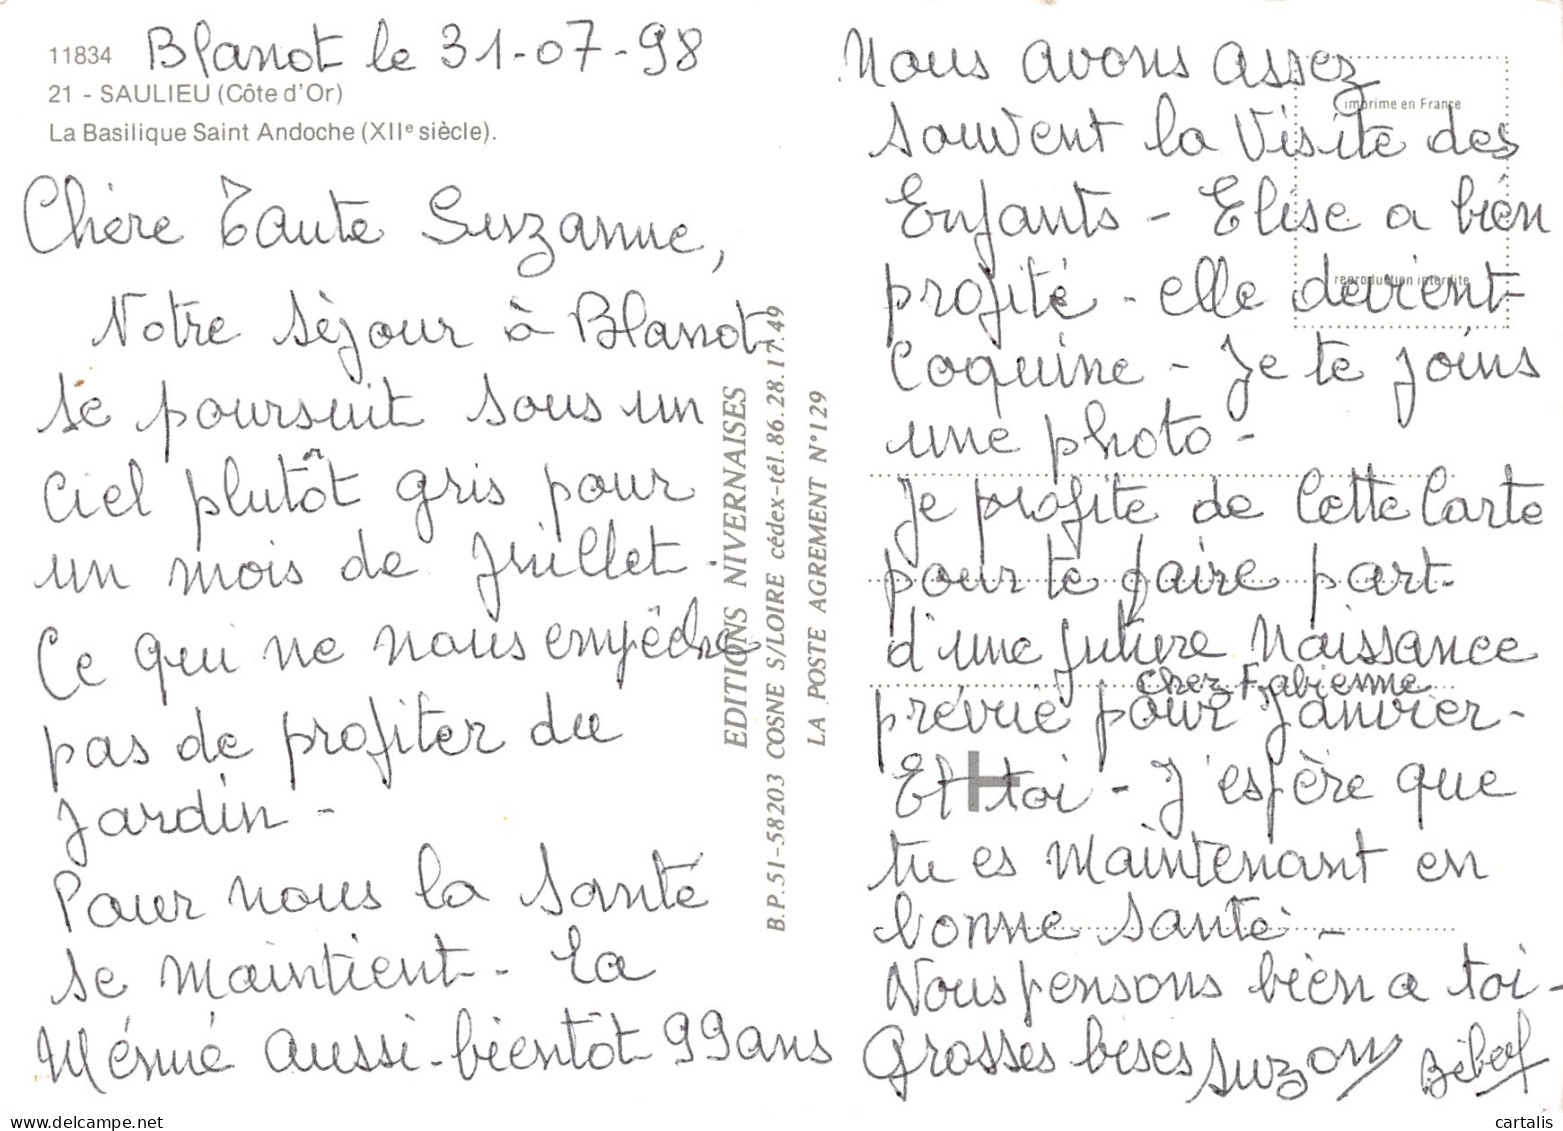 11834 Blanot le 31-07-98
21 - SAULIEU (Côte d'Or)
La Basilique Saint Andoche (XIIe siècle).
Chère Tante Suzanne,
Notre séjour à Blanot
se poursuit sous un
ciel plutôt gris pour
un mois de Juillet.
Ce qui ne nous empêche
pas de profiter du
Jardin -
Pour nous la santé
se maintient - La
Mémé aussi - bientôt 99 ans
EDITIONS NIVERNAISES
B.P. 51-58203 COSNE S/LOIRE cédex-tél. 86.28.17.49
LA POSTE AGREMENT N° 129
Nous avons assez
souvent la visite des
Enfants - Elise a bien
profité - elle devient
coquine - Je te joins
une photo -
Je profite de cette carte
pour te faire part
d'une future naissance
chez Fabienne
prévue pour Janvier -
Et toi - J'espère que
tu es maintenant en
bonne santé -
Nous pensons bien a toi -
Grosses bises Suzon
imprime en France
reproduction interdite
cartalis